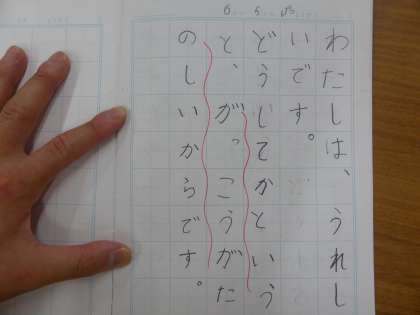 わたしは、うれし
いです。
どうしてかという
と、がっこうがた
のしいからです。